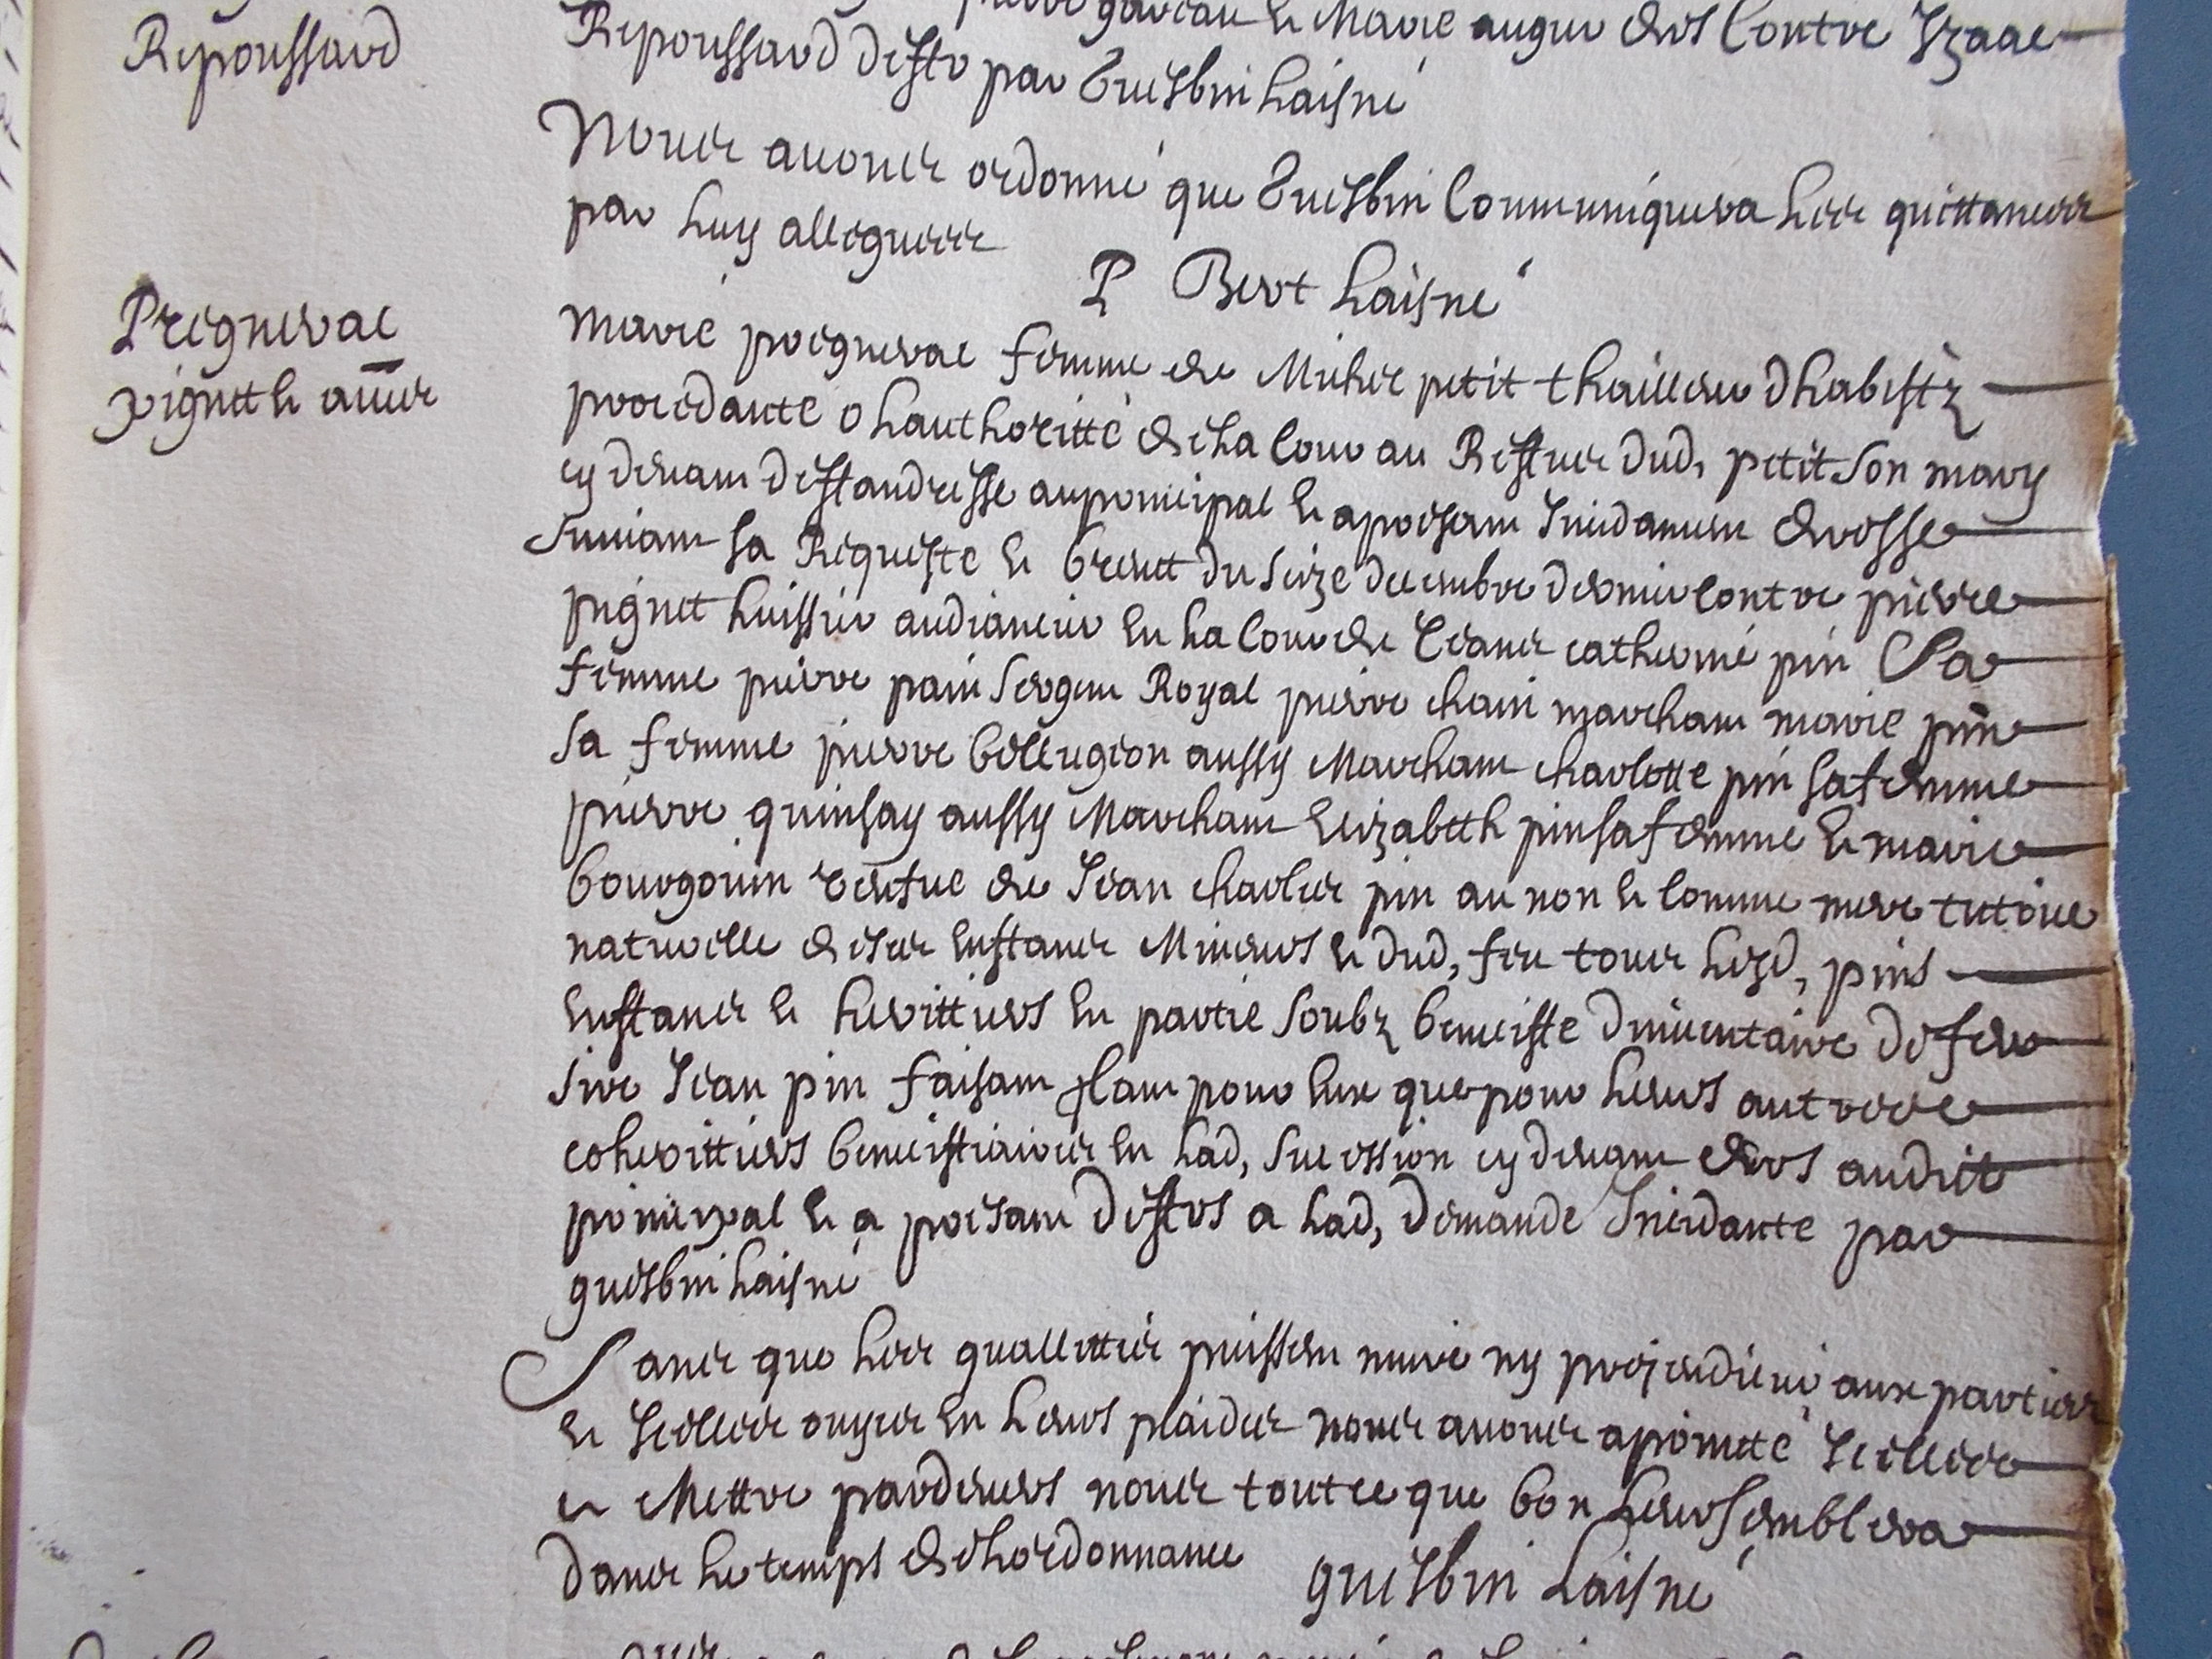 Repoussard
pierre gaveau et Marie augier drs Contre Izaac
Repoussard deffr par Guesbin Laisné
Nous avons ordonné que Guesbin Communiquera Les quittances
par Luy alleguees
P Bert Laisné
Pregnerac
pignet et aues
Marie pregnerac femme de Michel petit thailleur dhabistz
procedante o Lauthoritté de La Cour au Reffus dud, petit son mary
cy devant deffandresse auprincipal et apresent Insidament drosse
Suivant Sa Requeste et brevet du Seize decembre dernier contre pierre
pignet huissier audiancier en La Cour de Ceans catherine pin Sa
femme pierre pain Sergent Royal pierre chain marchant marie pin
Sa femme pierre bellugeon aussy Marchant charlotte pin Sa femme
pierre quinsay aussy Marchant Elizabeth pin sa femme et marie
bourgoin vesfue de Jean charles pin au non et Comme mere tutrice
naturelle de ses enffans Mineurs et dud, feu tous Lesd, pins
enffans et heritiers en partie Soubz beneiffe dinventaire de feu
Sire Jean pin faisant tant pour eux que pour Leurs autres
coherittiers beneiffiaires en Lad, Sucession cy devant drs audit
principal et a present deffrs a Lad, demande Insidante par
guesbin Laisné
Sans que Les quallittés puissent nuire ny prejeudicier aux parties
et Icelles ouyes en Leurs plaides nous avons apointté Icelles
a Mettre pardevers nous tout ce que bon Leur Semblera
dans Le temps de Lordonnance guesbin Laisné